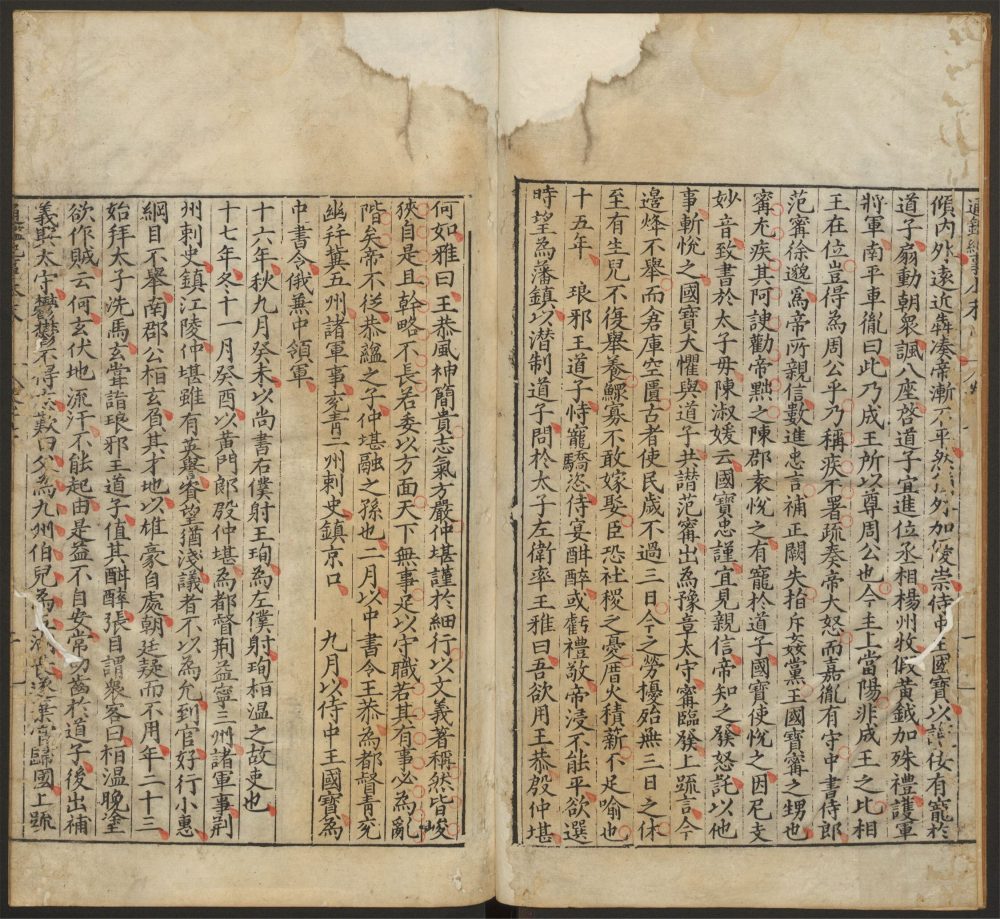 傾內外遠近犇凑帝漸不平然猶外加優崇侍中王國寶以讒佞有寵於
道子扇動朝衆諷八座啓道子宜進位丞相楊州牧假黃鉞加殊禮護軍
將軍南平車胤曰此乃成王所以尊周公也今主上當陽非成王之比相
王在位豈得為周公乎乃稱疾不署疏奏帝大怒而嘉胤有守中書侍郎
范甯徐邈爲帝所親信數進忠言補正闕失指斥姦黨王國寶甯之甥也
甯尤疾其阿諛勸帝黜之陳郡袁悅之有寵於道子國寶使悅之因尼支
妙音致書於太子母陳淑媛云國寶忠謹宜見親信帝知之發怒託以他
事斬悅之國寶大懼與道子共譖范甯出為豫章太守甯臨發上疏言今
邊烽不舉而倉庫空匱古者使民歲不過三日今之勞擾殆無三日之休
至有生兒不復舉養鰥寡不敢嫁娶臣恐社稷之憂厝火積薪不足喻也
十五年 琅邪王道子恃寵驕恣侍宴酣醉或虧禮敬帝浸不能平欲選
時望為藩鎮以潜制道子問於太子左衛率王雅曰吾欲用王恭殷仲堪
何如雅曰王恭風神簡貴志氣方嚴仲堪謹於細行以文義著稱然皆峻
狹自是且幹略不長若委以方面天下無事足以守職若其有事必為亂
階矣帝不從恭蘊之子仲堪融之孫也二月以中書令王恭為都督青兗
幽幷冀五州諸軍事兗青二州刺史鎮京口 九月以侍中王國寶為
中書令俄兼中領軍
十六年秋九月癸未以尚書右僕射王珣為左僕射珣桓溫之故吏也
十七年冬十一月癸酉以黃門郎殷仲堪為都督荊益寧三州諸軍事荊
州刺史鎮江陵仲堪雖有英譽資望猶淺議者不以為允到官好行小惠
綱目不舉南郡公桓玄負其才地以雄豪自處朝廷疑而不用年二十三
始拜太子洗馬玄甞詣琅邪王道子值其酣醉張目謂衆客曰桓溫晚塗
欲作賊云何玄伏地流汗不能起由是益不自安常切齒於道子後出補
義興太守鬱鬱不得志歎曰父為九州伯兒為五湖長遂棄官歸國上疏